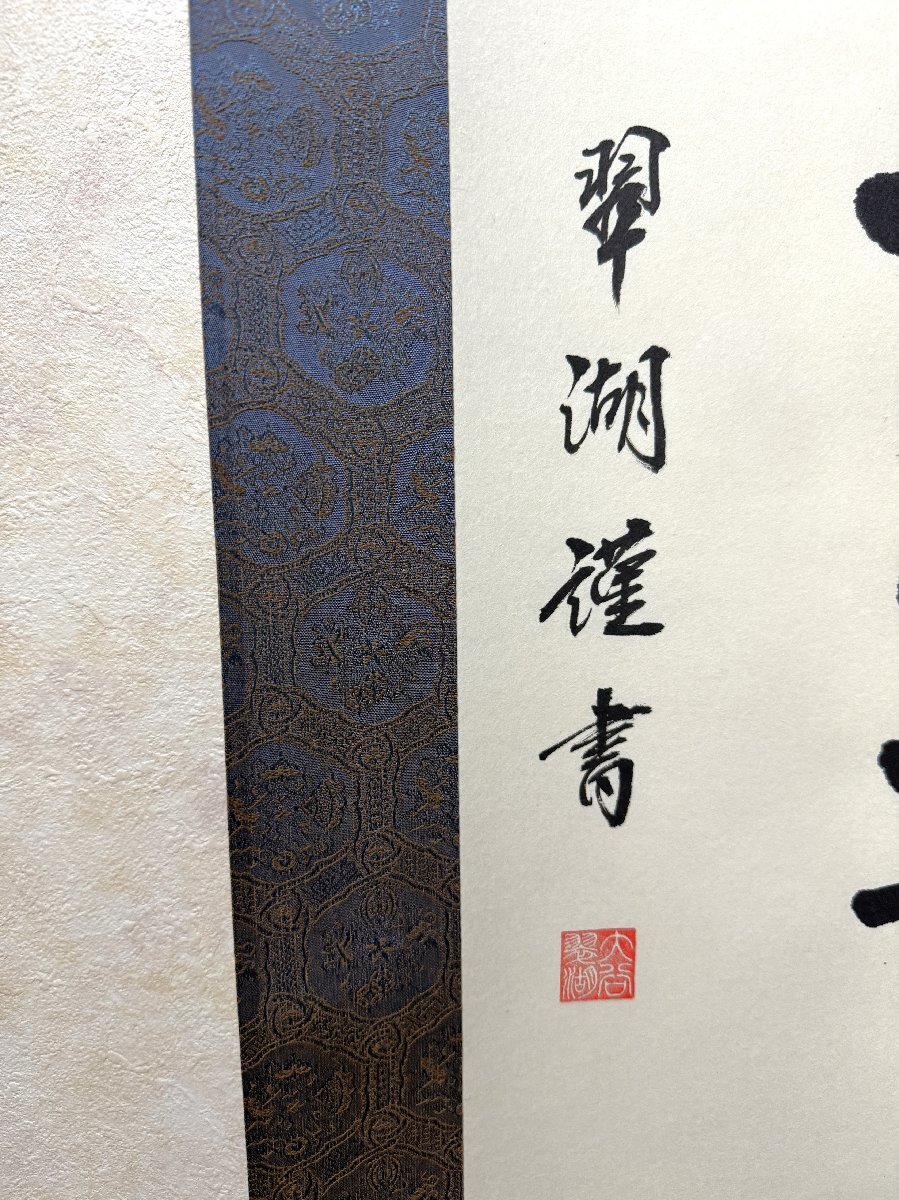 翠湖謹書
大谷
翠湖